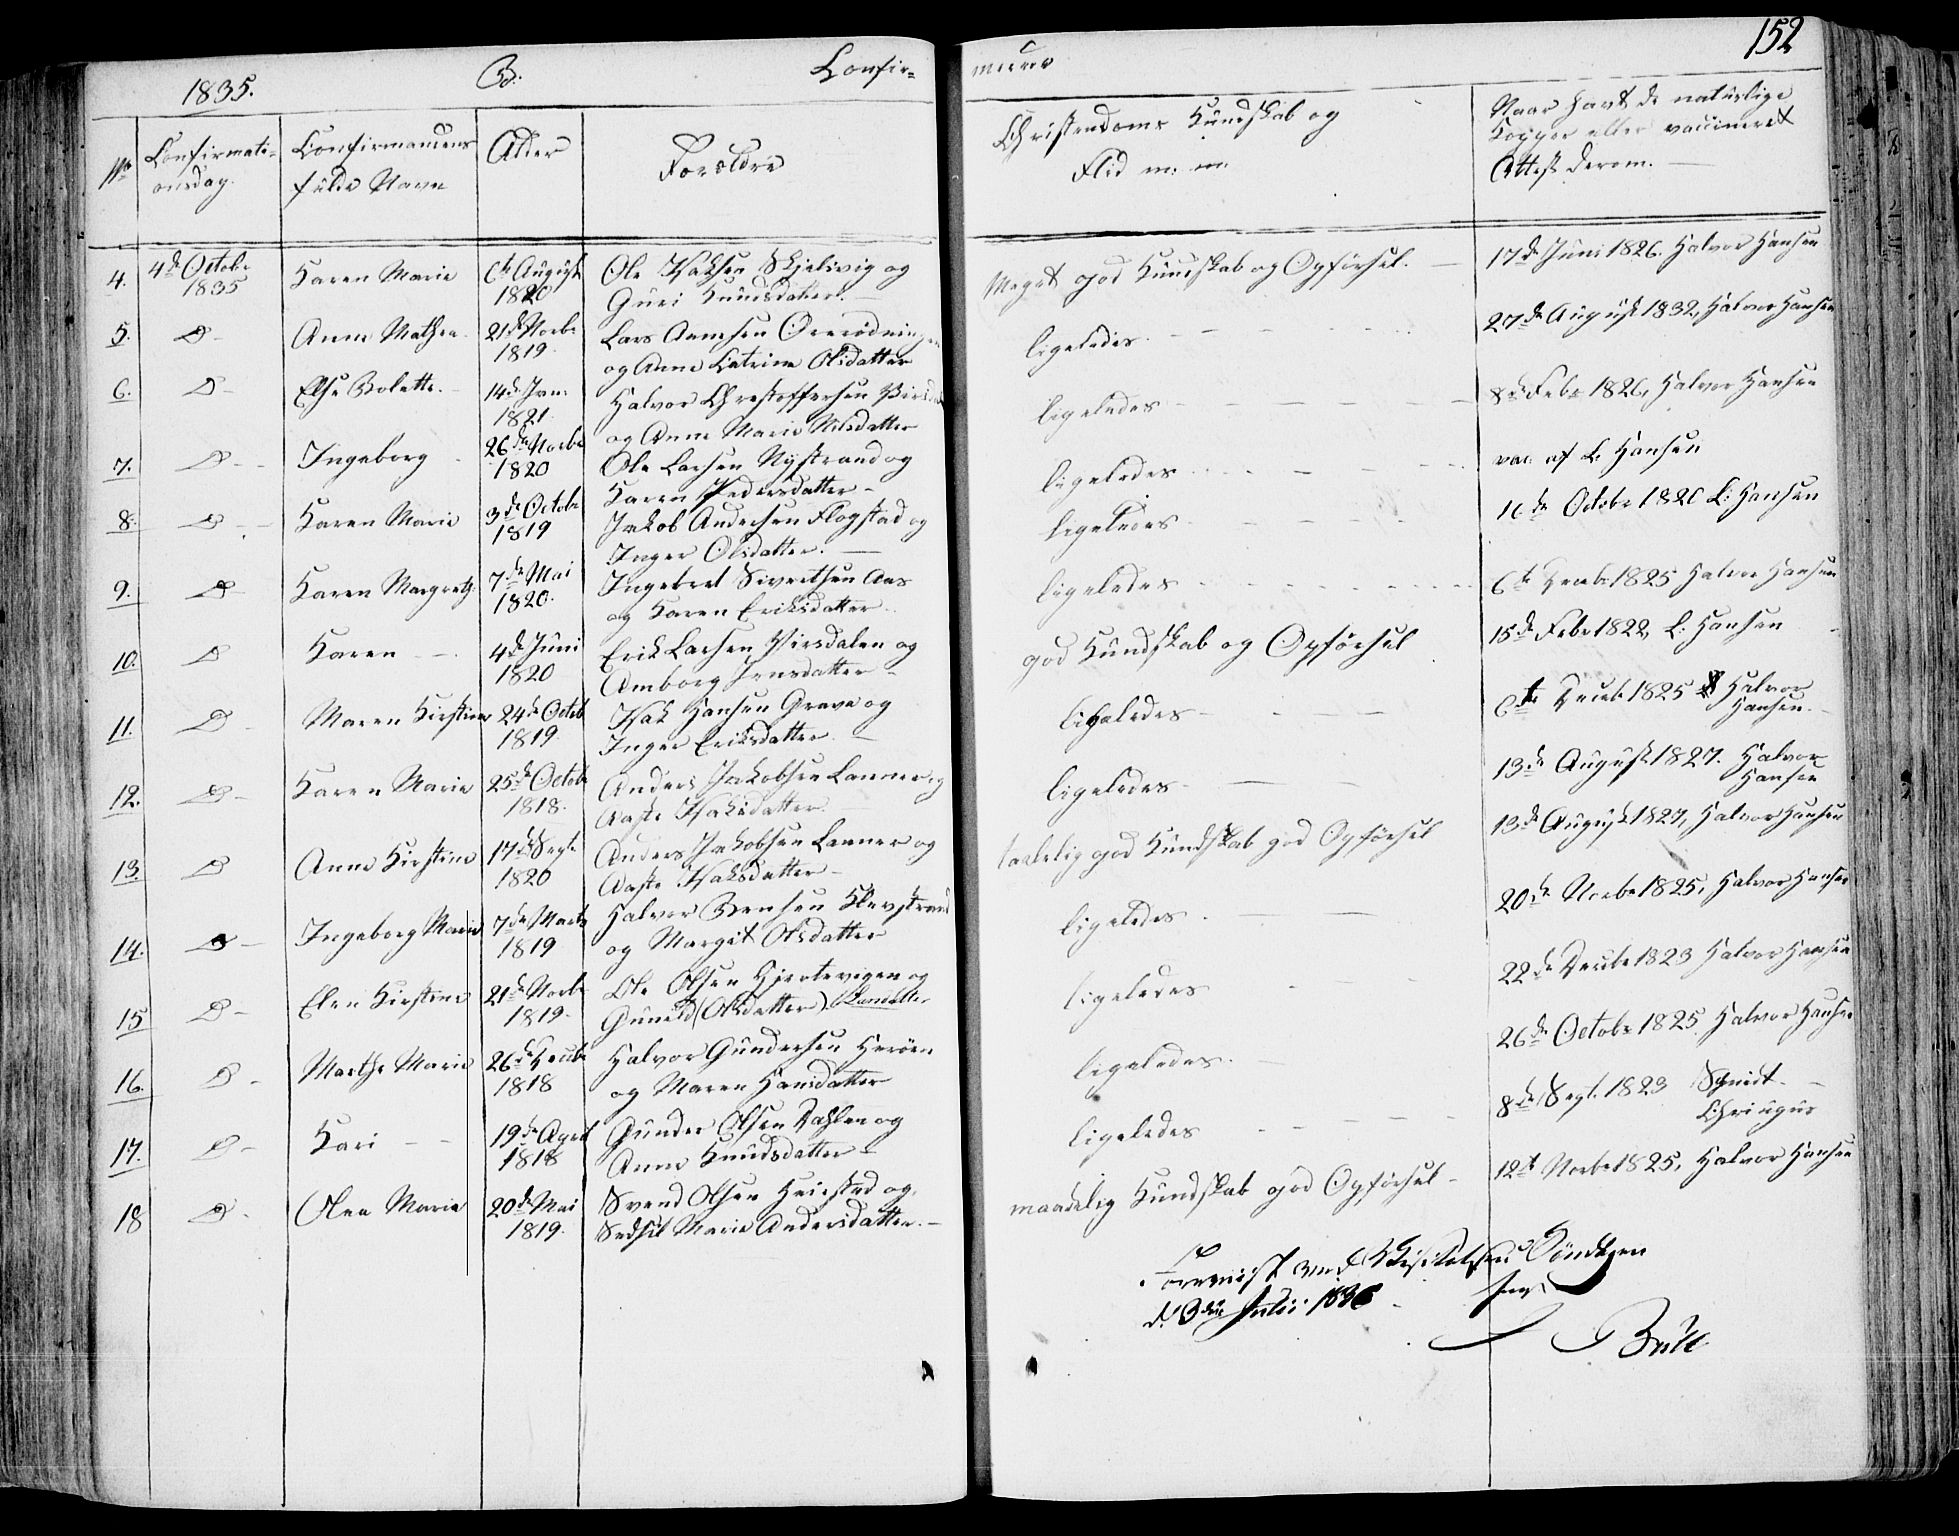 1835.
B.
Confir=
merede
152
No
Confirmati=
onsdag.
Confirmandens
fulde Navn
Alder
Forældre
Christendoms Kundskab og
Flid m: m:
Naar havt de naturlige
Kopper eller vaccineret
Attest derom.
4. 4de Octobr 1835 Karen Marie 6te August 1820 Ole Isaksen Skjelsvig og Guri Knudsdatter. Meget god Kundskab og Opførsel. 17de Juni 1826. Halvor Hansen
5. D- Anne Mathea 21de Novbr 1819. Lars Aamsen og Anne Catrine Olsdatter ligeledes. 27de August 1832, Halvor Hansen
6. D- Else Bolette. 14de Jan: 1821. Halvor Christoffersen og Anne Marie Nilsdatter ligeledes 8de Febr 1826, Halvor Hansen
7. D- Ingeborg 26de Novbr 1820 Ole Larsen Nystrand og Karen Pedersdatter ligeledes vac: af L. Hansen
8. D- Karen Marie 3de Octobr 1819 Jakob Andersen Flogstad og Inger Olsdatter. ligeledes 16de Octobr 1820 L: Hansen
9. D- Karen Margrete 7de Mai 1820. Ingebret Sivertsen Aas og Karen Eriksdatter ligeledes 6te Decbr 1825 Halvor Hansen
10. D Karen 4de Juni 1820 Erik Larsen Virsdalen og Amborg Jensdatter god Kundskab og Opførsel 15de Febr 1822, L: Hansen
11. D- Maren Kirstine 24de Octob 1819. Isak Hansen Grava og Inger Eriksdatter. ligeledes 6te Decbr 1825 Halvor Hansen.
12. D- Karen Marie 25de Octobr 1818. Anders Jakobsen Lanner og Aaste Isaksdatter ligeledes 13de August 1827. Halvor Hansen
13. D Anne Kirstine 17de Septr 1820 Anders Jakobsen Lanner og Aaste Isaksdatter taalelig god Kundskab god Opførsel 13de August 1827, Halvor Hansen
14. D- Ingeborg Marie 7de Marts 1819 Halvor Bensen Klevstrand og Margit Olsdatter ligeledes 20de Novbr 1825, Halvor Hansen
15 D- Elen Kirstine 21de Novbr 1819. Ole Olsen Hjertevigen og Gunild (Olsdatter) ligeledes 22de Decbr 1823 Halvor Hansen
16. D- Marthe Marie 26de Decbr 1818 Halvor Gundersen Herøen og Maren Hansdatter ligeledes. 26de Octobr 1825 Halvor Hansen
17. D- Kari 19de April 1818 Gunder Olsen Dahlen og Anne Knudsdatter ligeledes 8de Sept. 1823 Schmidt Chirugus
18 D- Olea Marie 20de Mai 1819. Svend Olsen Heirstad og Sedsel Marie Andersdatter. maadelig Kundskab god Opførsel 12te Novbr 1825, Halvor Hansen
Foreviist ved Visitatsen
d: 3die Julii 1836
Bull